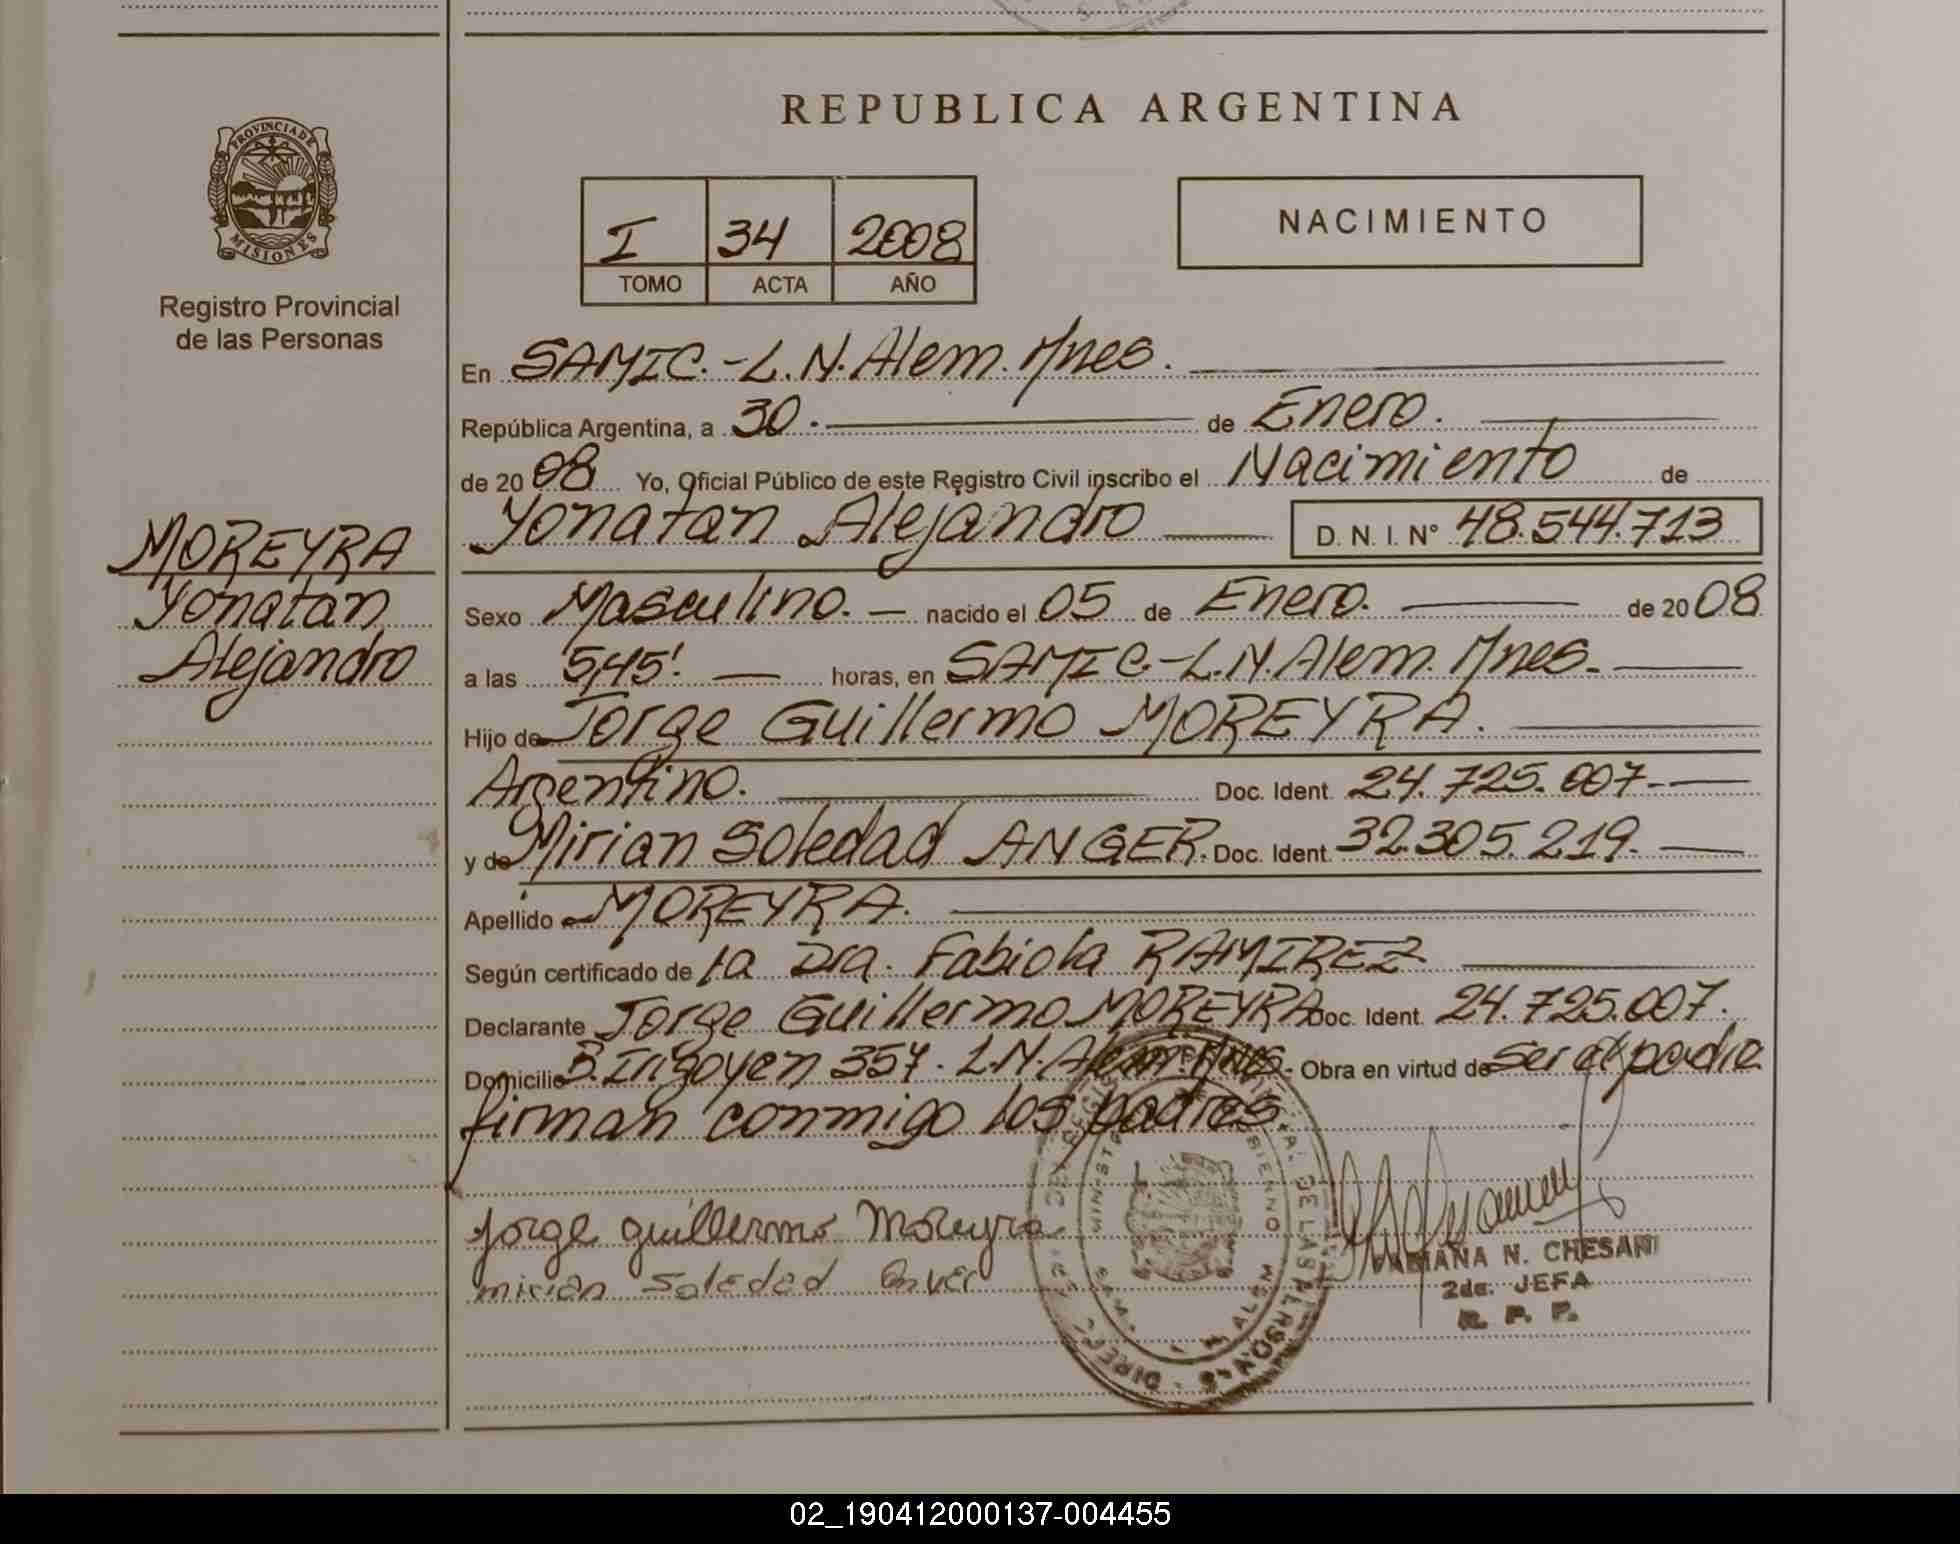 PROVINCIA DE
MISIONES
Registro Provincial
de las Personas
MOREYRA
Yonatan
Alejandro
REPUBLICA ARGENTINA
I 34 2008
TOMO ACTA AÑO
NACIMIENTO
En SAMIC.-L.N.Alem.Mnes.
República Argentina, a 30.- de Enero.
de 2008 Yo, Oficial Público de este Registro Civil inscribo el Nacimiento de
Yonatan Alejandro D. N. I. N° 48.544.713
Sexo Masculino. nacido el 05 de Enero. de 2008
a las 5,45'. horas, en SAMIC.-L.N.Alem.Mnes.
Hijo de Jorge Guillermo MOREYRA.
Argentino. Doc. Ident. 24.725.007-
y de Mirian Soledad ANGER. Doc. Ident. 32.305.219.
Apellido MOREYRA.
Según certificado de la Dra. Fabiola RAMIREZ
Declarante Jorge Guillermo MOREYRA Doc. Ident. 24.725.007.
Domicilio B. Irigoyen 357. L.N.Alem.Mnes. Obra en virtud de ser el padre
firman conmigo los padres.
Jorge guillermo Moreyra
mirian Soledad
N. CHESANI
2da. JEFA
R. P. P.
02_190412000137-004455